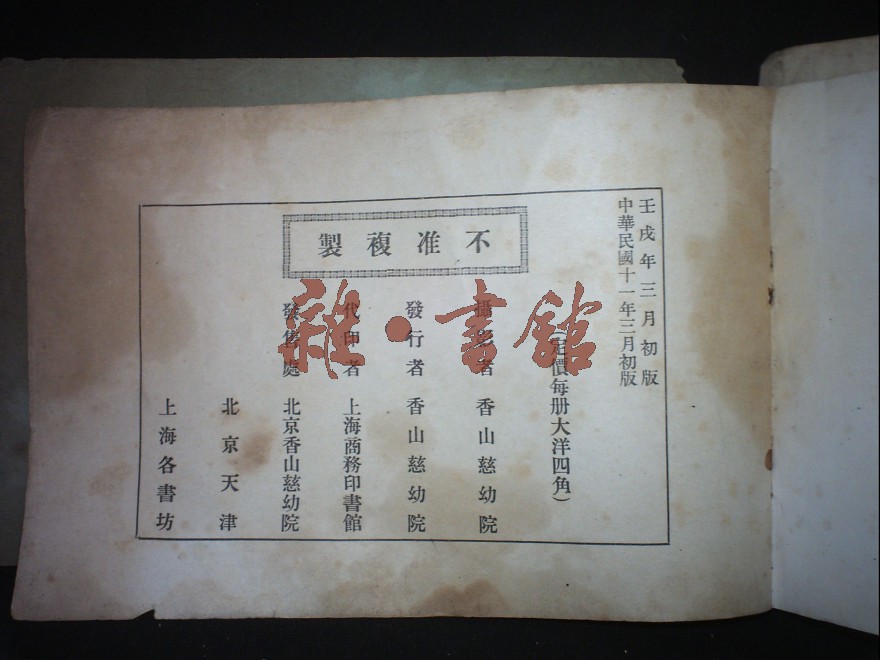 壬戌年三月初版
中華民國十一年三月初版
不准複製
(定價每册大洋四角)
攝影者 香山慈幼院
發行者 香山慈幼院
代印者 上海商務印書館
發售處 北京香山慈幼院
北京天津
上海各書坊
雜·書館